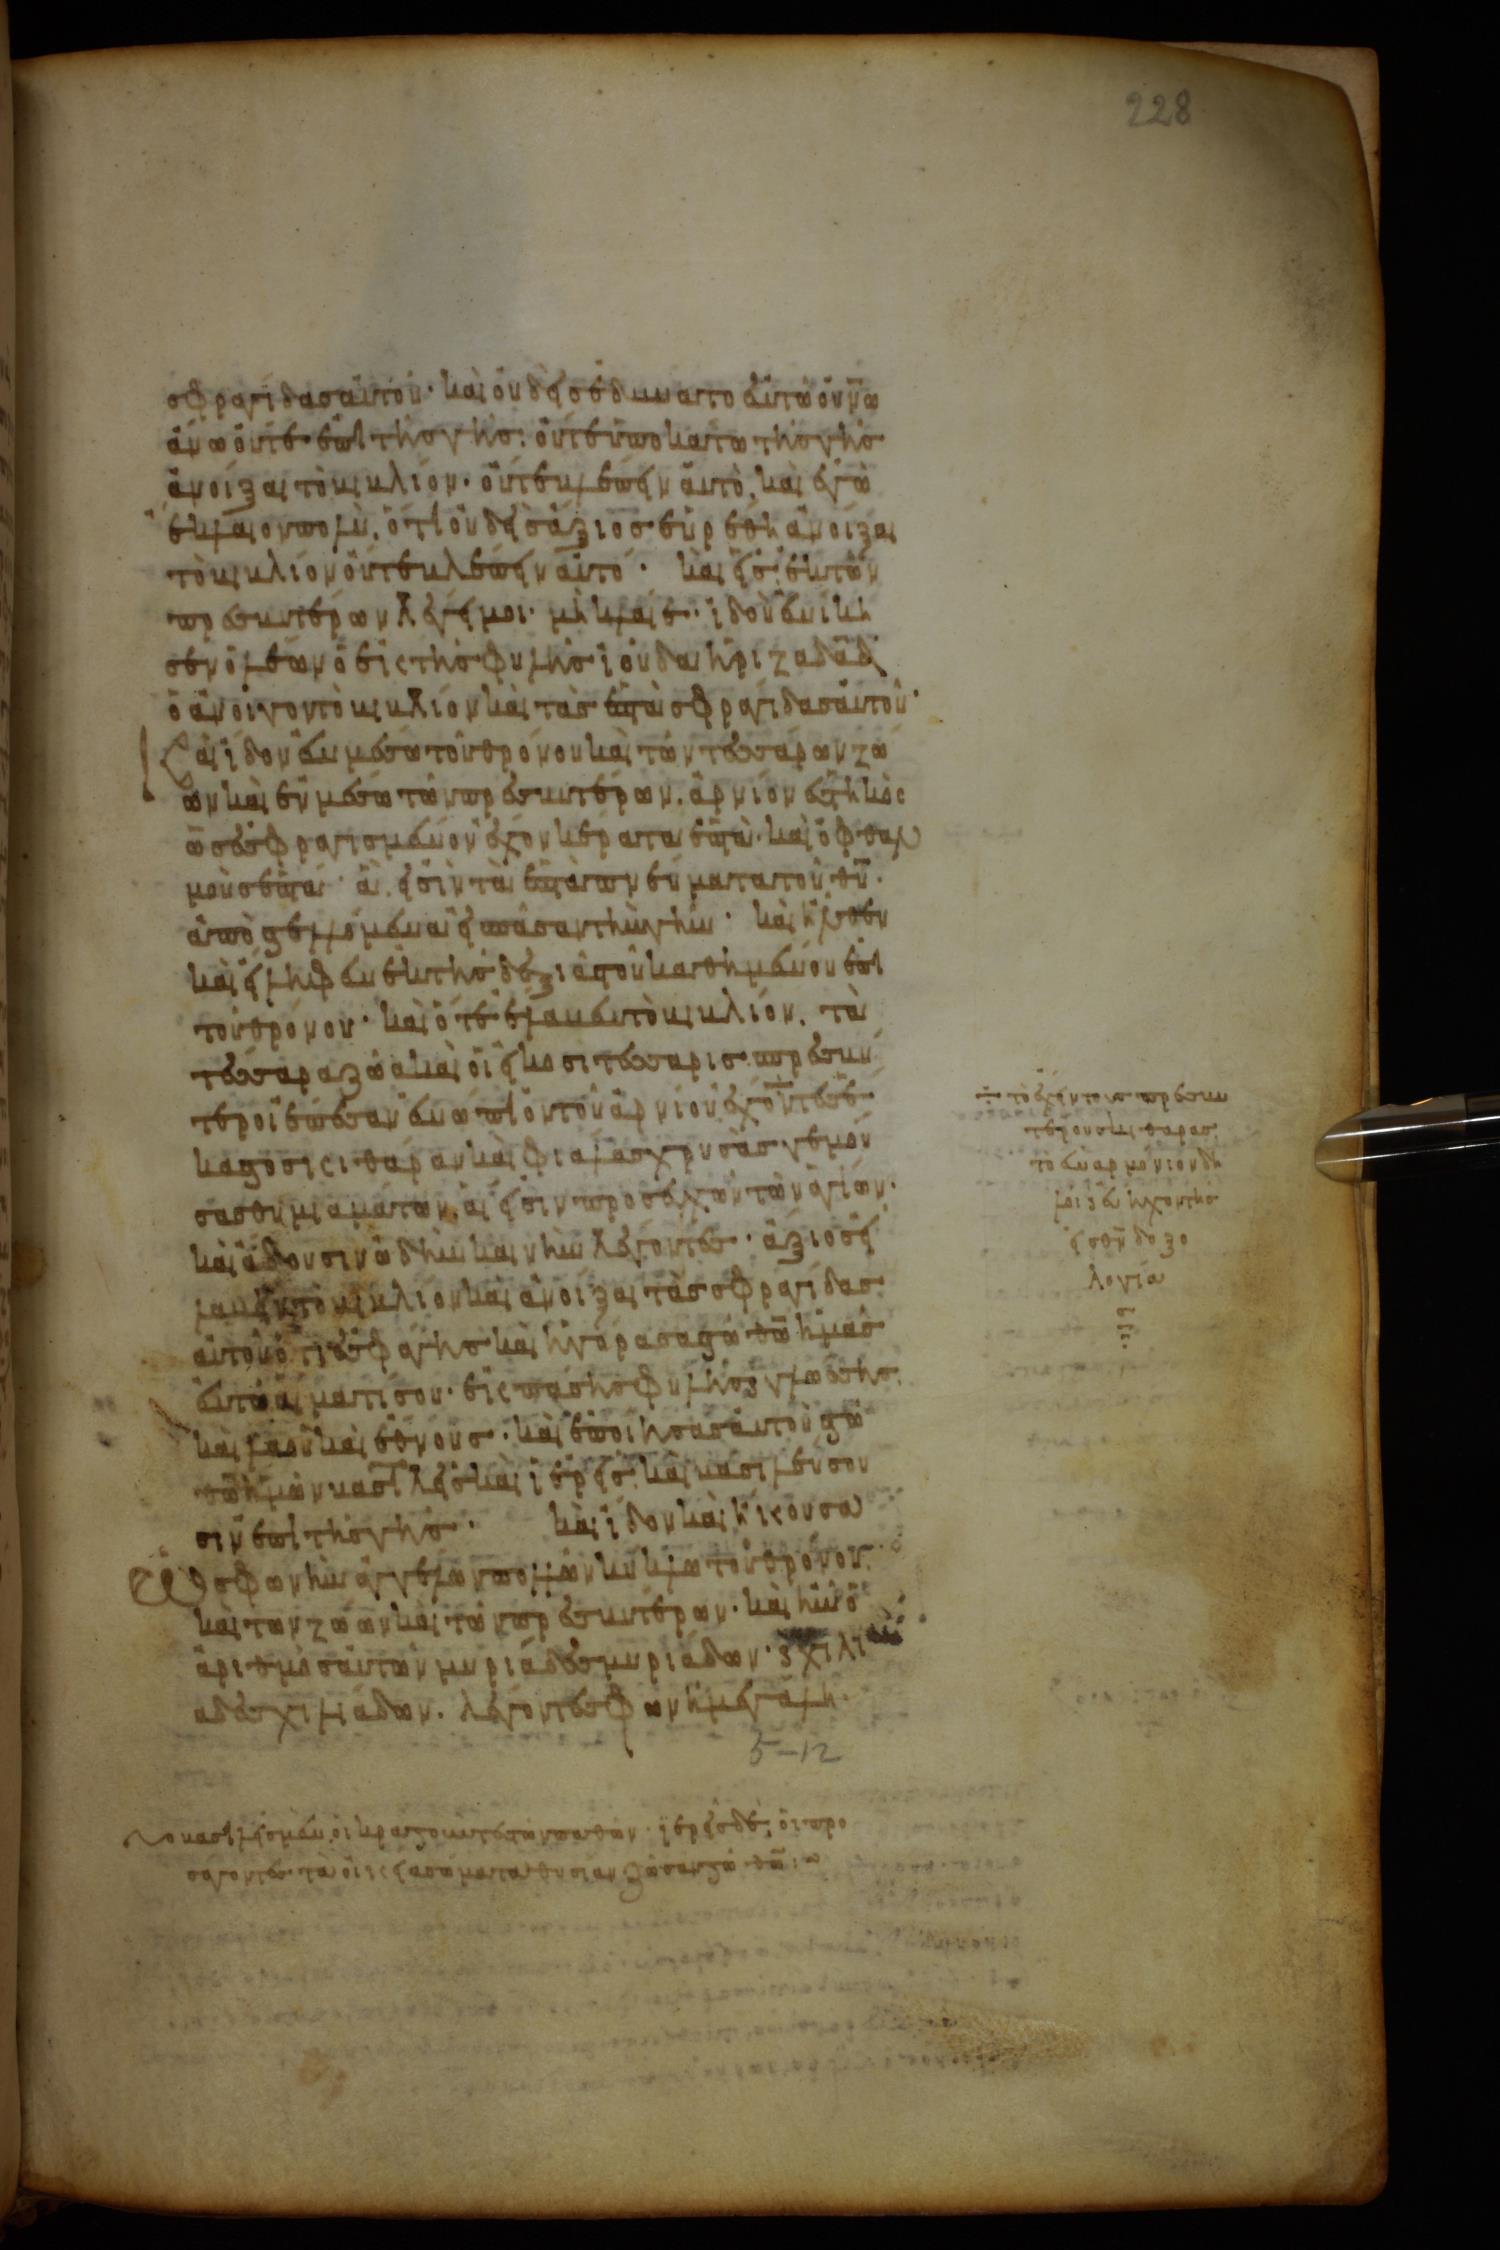 228
σφραγίδας αὐτοῦ· καὶ οὐδεὶς ἐδύνατο ἐν τῷ οὐνῶ
ἄνω οὔτε ἐπὶ τῆς γῆς· οὔτε ὑποκάτω τῆς γῆς
ἀνοίξαι τὸ βιβλίον· οὔτε βλέπειν αὐτὸ, καὶ ἐγὼ
ἔκλαιον πολὺ, ὅτι οὐδεὶς ἄξιος εὑρέθη ἀνοίξαι
τὸ βιβλίον οὔτε βλέπειν αὐτό· καὶ εἷς ἐκ τῶν
πρεσβυτέρων λέγει μοι· μὴ κλαῖε· ἰδοὺ ἐνίκη
σεν ὁ λέων ὁ εἰς τῆς φυλῆς ἰούδα ἡ ρίζα δᾱδ
ὁ ἀνοίγον τὸ βιβλίον καὶ τὰς ἑπτὰ σφραγίδας αὐτοῦ·
Καὶ ἴδον ἐν μέσω τοῦ θρόνου καὶ τῶν τεσσάρων ζώ
ων καὶ ἐν μέσω τῶν πρεσβυτέρων, ἀρνίον ἑστηκὸς
ὡς ἐσφραγισμένον ἔχον κέρατα ἑπτὰ· καὶ ὀφθαλ
μοὺς ἑπτὰ· ἅ εἰσὶν τὰ ἑπτὰ πνεύματα τοῦ θῡ·
ἀποστελλόμενα εἰς πᾶσαν τὴν γῆν· καὶ ἦλθεν
καὶ εἴληφεν ἐκ τῆς δεξιᾶς τοῦ καθημένου ἐπὶ
τοῦ θρόνου· καὶ ὅτε ἔλαβεν τὸ βιβλίον, τὰ
τέσσαρα ζῶα καὶ οἱ εἴκοσι τέσσαρις πρεσβύ
τεροι ἔπεσαν ἐνώπιον τοῦ ἀρνίου ἔχοντες ἕ
καστος κιθάραν καὶ φιάλας χρυσᾶς γεμού
σας θυμιαμάτων, αἵ εἰσιν προσευχῶν τῶν ἁγίων·
καὶ ἄδουσιν ὠδὴν καινὴν λέγοντες· ἄξιος εἶ
λαβεῖν τὸ βιβλίον καὶ ἀνοίξαι τὰς σφραγίδας
αὐτοῦ ὅτι ἐσφάγης καὶ ἠγόρασας τῷ θῶ ἡμᾶς
ἐν τῷ αἵματί σου· ἐκ πάσης φυλῆς ϗ γλώσσης·
καὶ λαοῦ καὶ ἔθνους· καὶ ἐποίησας αὐτοὺς τῷ
θῶ ἡμῶν βασιλεῖς καὶ ἱερεῖς· καὶ βασιλεύσου
σιν ἐπὶ τῆς γῆς· καὶ ἴδον καὶ ἤκουσα
Ὡς φωνὴν ἀγγέλων πολλῶν κύκλω τοῦ θρόνου
καὶ τῶν ζώων καὶ τῶν πρεσβυτέρων· καὶ ἦν ὁ
ἀριθμὸς αὐτῶν μυριάδες μυριάδων· ϗ χιλι
αδες χιλιάδων. λέγοντες φωνῇ μεγάλη·
5-12
÷ τὸ ἔχειν τοὺς πρεσβυ
τέρους κιθάρας
τὸ ἐναρμόνιον δη
λοῖ ϗ εὔηχον τῆς
εἰς θν̄ δοξο
λογίας
βασιλεῖς μὲν, οἱ κρατοῦντες τῶν παθῶν· ἱερεῖς δέ, οἱ προ
σάγοντες τὰ οἰκεῖα σώματα θυσίαν ζῶσαν τῷ θῶ